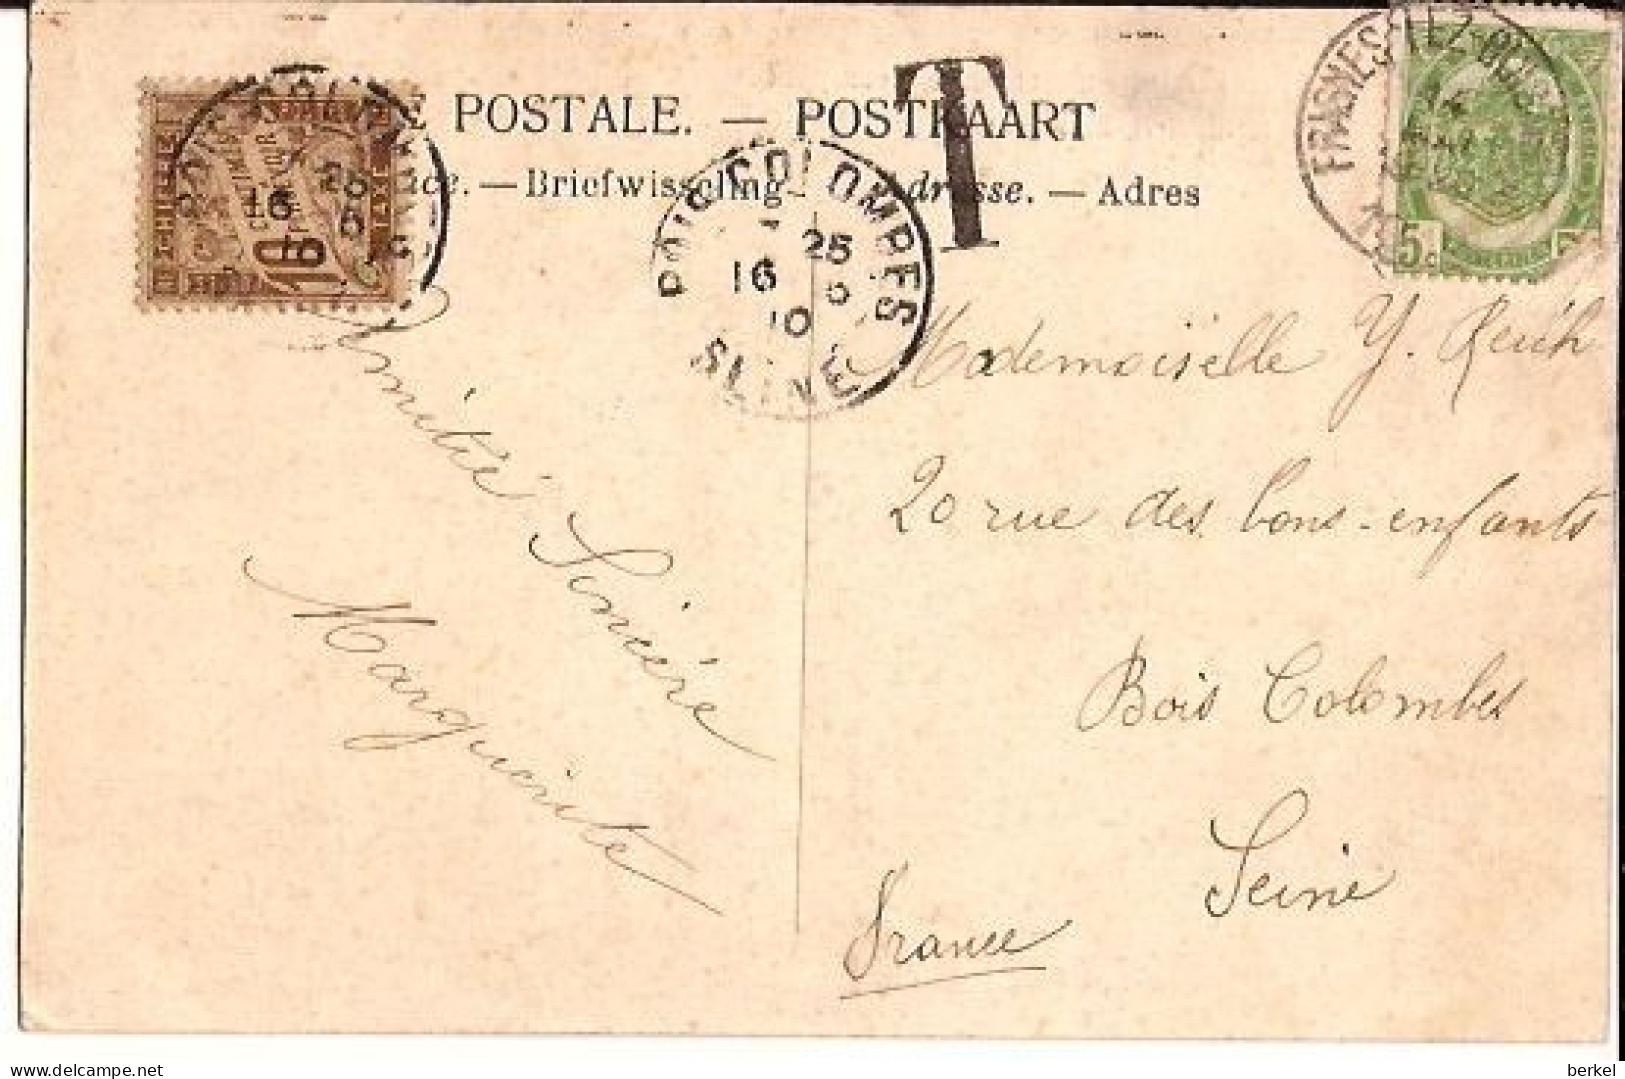 E POSTALE. — POSTKAART
ce. — Briefwisseling — dresse. — Adres
T
BOIS COLOMBES
16 25
5
10
SEINE
16 25
5
10
FRASNES-LEZ
5c
Mademoiselle Y.
20 rue des bons-enfants
Bois Colombes
Seine
France
Amitié Sincère
Marguerite
berkel